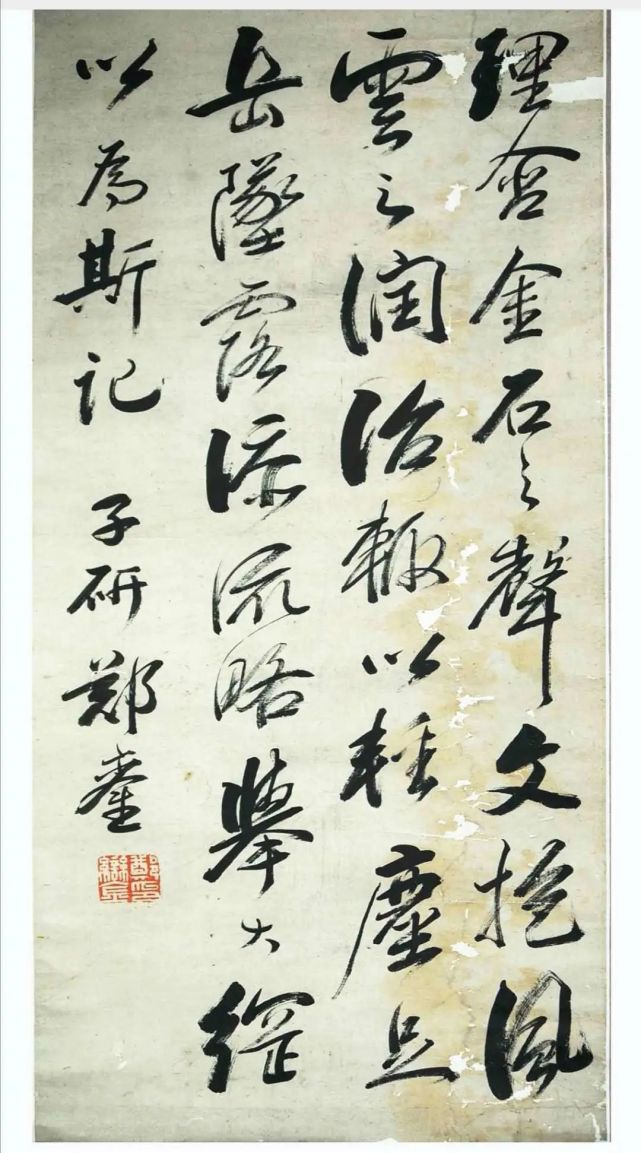 理含金石之聲文抱風
雲之潤治輒以輕塵足
岳墜露添流略舉大綱
以為斯記 子研鄭鑾